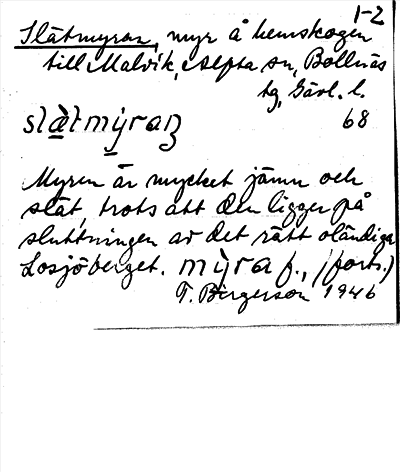 1-2
Slätmyran, myr å hemskogen
till Malvik, Alfta sn, Bollnäs
tg, Gävl. l.
slàtmỳraṇ 68
Myren är mycket jämn och
slät, trots att den ligger på
sluttningen av det rätt oländiga
Losjöberget. mỳra f., (forts.)
T. Birgerson 1946